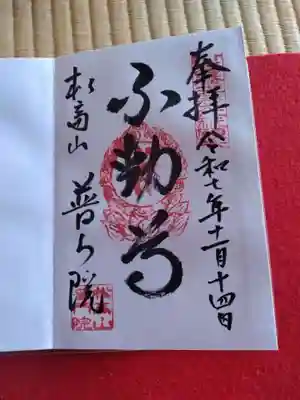 奉拝 令和七年十一月十四日
不動尊
山 普门院